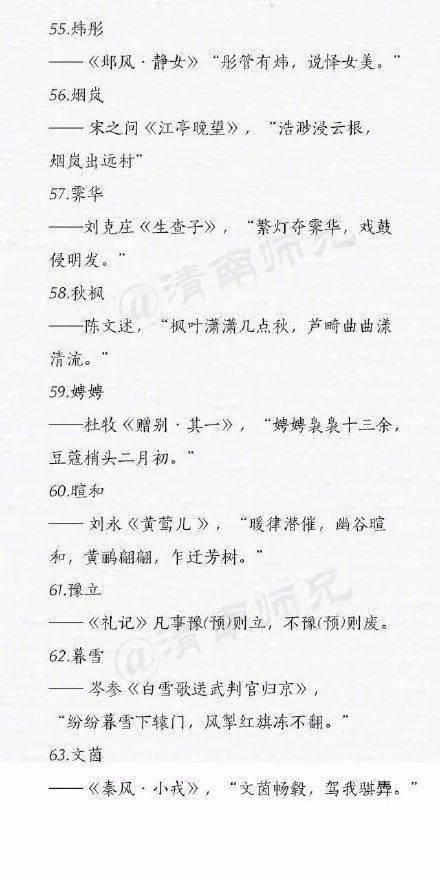 55.炜彤
——《邶风·静女》“彤管有炜，说怿女美。”
56.烟岚
—— 宋之问《江亭晚望》，“浩渺浸云根，
烟岚出远村”
57.霁华
——刘克庄《生查子》，“繁灯夺霁华，戏鼓
侵明发。”
58.秋枫
——陈文述，“枫叶潇潇几点秋，芦畸曲曲漾
清流。”
59.娉娉
——杜牧《赠别·其一》，“娉娉袅袅十三余，
豆蔻梢头二月初。”
60.暄和
—— 刘永《黄莺儿 》，“暖律潜催，幽谷暄
和，黄鹂翩翩，乍迁芳树。”
61.豫立
——《礼记》凡事豫(预)则立，不豫(预)则废。
62.暮雪
—— 岑参《白雪歌送武判官归京》，
“纷纷暮雪下辕门，风掣红旗冻不翻。”
63.文茵
——《秦风·小戎》，“文茵畅毂，驾我骐馵。”
@清南师兄
@清南师兄